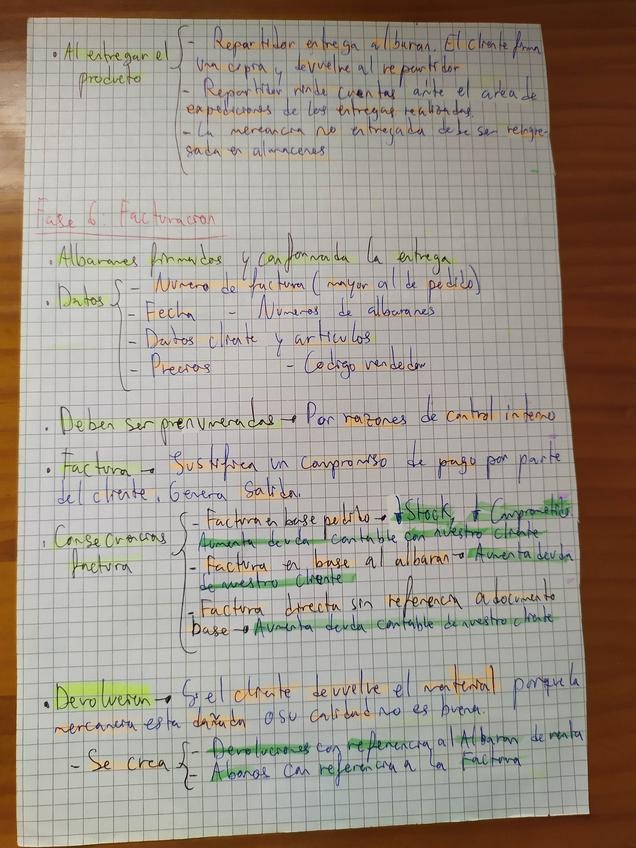 · Al entregar el producto
- Repartidor entrega albaran. El cliente firma
una copia y devuelve al repartidor
- Repartidor rinde cuentas ante el area de
expediciones de las entregas realizadas.
- La mercancia no entregada debe ser reingre-
sada en almacenes
Fase 6: Facturacion
· Albaranes firmados y conformada la entrega
· Datos
- Numero de factura (mayor al de pedido)
- Fecha - Numeros de albaranes
- Datos cliente y articulos
- Precios - Codigo vendedor
· Deben ser prenumeradas → Por razones de control interno
· Factura → Justifica un compromiso de pago por parte
del cliente. Genera Salida.
· Consecuencias factura
- Factura en base pedido → ↓ Stock, ↓ Comprometido
Aumenta deuda contable con nuestro cliente
- Factura en base al albaran → Aumenta deuda
de nuestro cliente
- Factura directa sin referencia a documento
base → Aumenta deuda contable de nuestro cliente
· Devolucion → Si el cliente devuelve el material porque la
mercancia esta dañada o su calidad no es buena.
- Se crea
- Devoluciones con referencia al Albaran de venta
- Abonos con referencia a la Factura